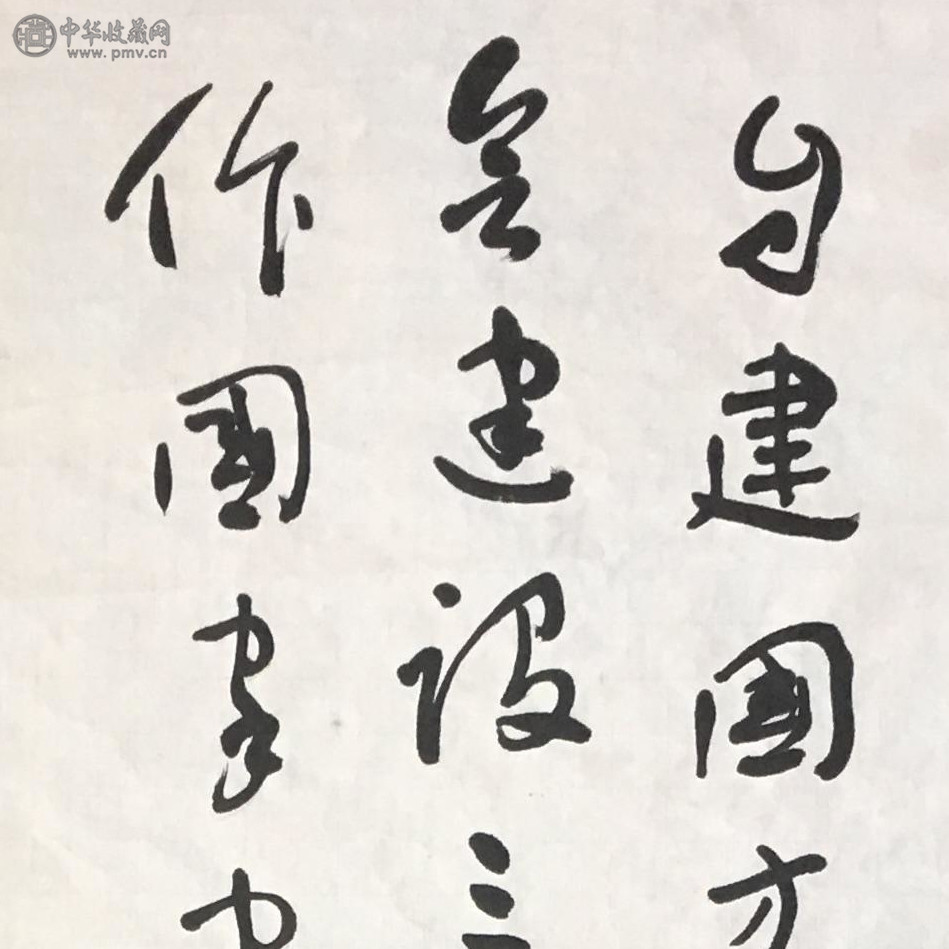 中华收藏网
www.pmv.cn
自建國方
會建設三
作國家